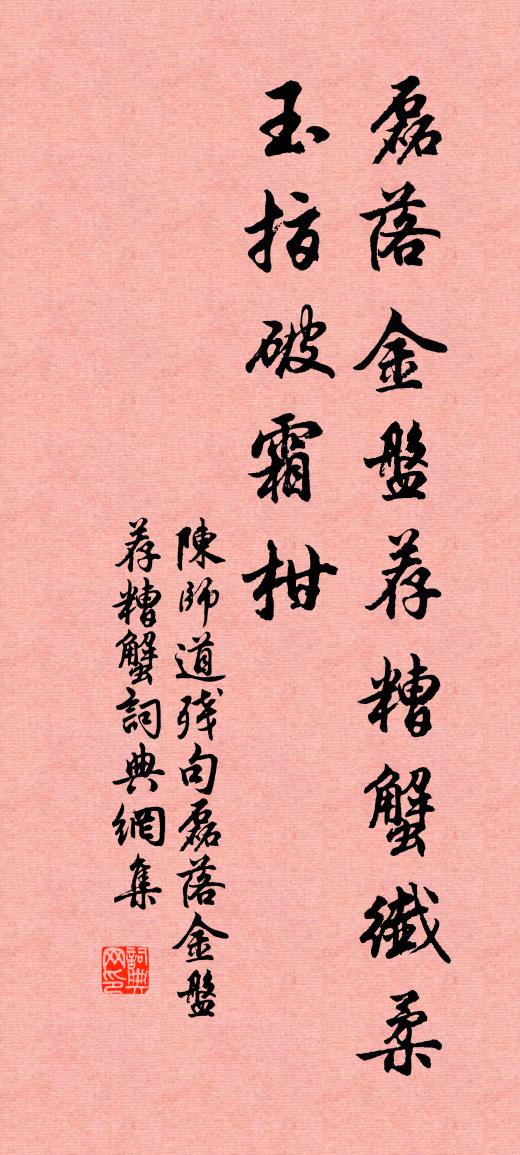 磊落金盤荐糟蟹纖柔
玉指破霜柑
陳師道殘句磊落金盤
荐糟蟹詞典網集
詞典网印